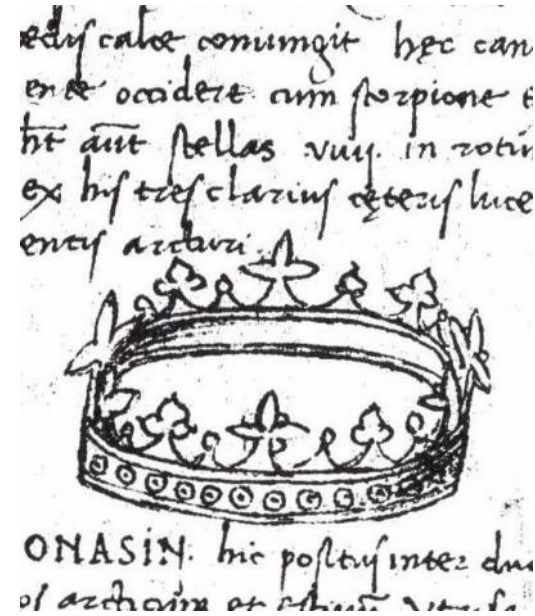 pediſ calce coniungit hęc can
ente occidere cum ſcorpione e
ht aūt ſtellas viiij. in rotun
ex hiſ treſ clariuſ cęteriſ luce
entiſ arcturi.
ONASIN. hic poſituſ inter duo
oſ arcticū et